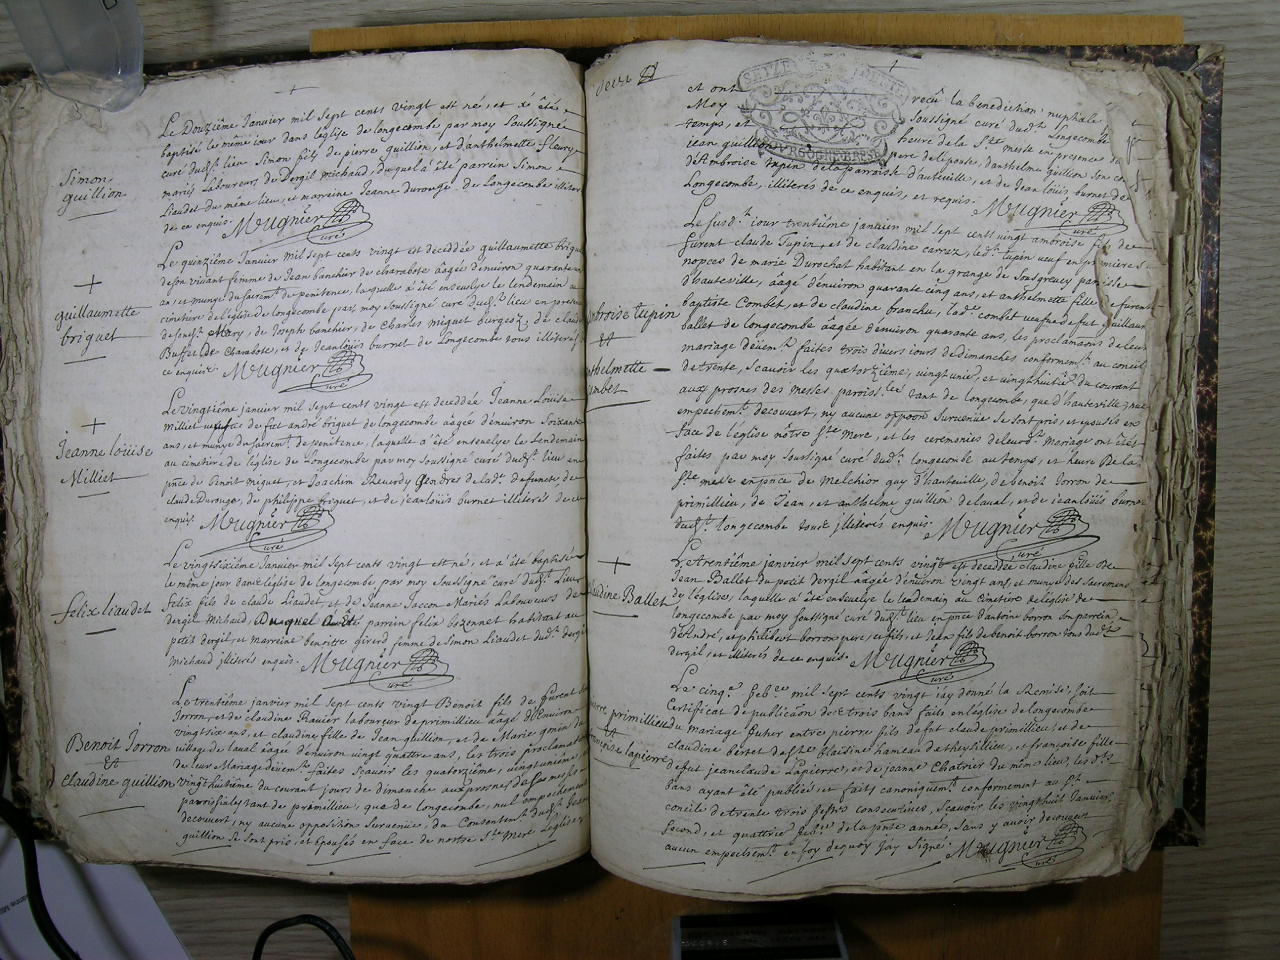 Le Douzième Janvier mil Sept cents vingt est né, et á étés
baptisé le même iour dans leglise de longecombe par moy Soussigné
curé dud.t lieu Simon fils de pierre guillion, et d'anthelmette fleury
mariés Laboureurs de Dergil michaud, duquel à été parrein Simon
Liaudet du même lieu, et marreine Jeanne durouge de Longecombe illiter
de ce enquis. Mugnier
curé
Simon
guillion
Le quinzième Janvier mil Sept cents vingt est decéddée guillaumette brigue
de son vivant femme de Jean banchier de charabote aagée denviron quarante
an, et munye du sacrem.t de penitence, laquelle a été enseuelye le lendemain au
cimetiere de leglise de longecombe par moy soussigné curé dud.t lieu en
de Joseph banchier, de Charles miguet burgeoz de claud
Buffet de Charabote, et de Jeanloüis burnet de Longecombe tous illiterés
ce enquis Mugnier
curé
guillaumette
briguet
Le vingtième janvier mil sept cents vingt est deceddée Jeanne Loüise
Milliet veufve de fut andré briguet de longecombe aagée denviron Soixante
ans, et munye du sacrem.t de penitence, laquelle a été ensevelye le Lendemain
au cimetiere de leglise de Longecombe par moy Soussigné curé dud.t lieu en
pnce de Benoit miguet, et Joachim Reverdy Gendres de lad.e defunte, de
claude Durouge, de philippe briguet, et de jeanloüis burnet illiterés de ce
enquis Mugnier
curé
Jeanne loüise
Milliet
Le vingtsixième Janvier mil Sept cents vingt est né, et a été baptisé
le même jour dans leglise de longecombe, par moy Soussigné curé dud.t Lieu
felix fils de claude Liaudet, et de Jeanne Jaccon Mariés Laboureurs de
dergil Michaud, Duquel a été parrein felix bozonnet habitant au
petit dergil, et marreine benoitte girerd femme de Simon Liaudet dud.t dergil
michaud jlliterés enquis. Mugnier
curé
felix liaudet
Le trentième janvier mil Sept cents vingt Benoit fils de furent
Jorron, et de claudine Ravier laboureur de primillieu aagé denviron
vingtsix ans, et claudine fille de Jean guillion, et de Marie
village de laval aagée denviron vingt quattre ans, les trois proclamats
de leur Mariage düem.t faittes scavoir les quatorzième, vingtunieme
vingthuitième du courant jours de dimanche aux prosnes des messes
parroissiales tant de primillieu, que de longecombe, nul empechement
decouvert, ny aucune opposition Survenüe, du Consentem.t dud.t Jean
guillion se sont pris, et épousés en face de nostre S.te Mere Leglise
Benoit Jorron
et
claudine guillion
et ont reçu la benediction nuptiale
Moy soussigné curé dud.t Longecombe
temps, et heure de la S.te messe en presence de
iean guillion pere de lepouse, danthelme guillion son
d'Ambroise tupin de la paroisse d'auteville, et de Jean loüis burnet de
Longecombe, illiterés de ce enquis, et requis. Mugnier
curé
Le susd.t iour trentième janvier mil Sept cents vingt ambroise fils de
furent claude Tupin, et de claudine carrez, led.t tupin veuf en premieres
nopces de marie Durochat habitant en la grange de Songreuey parroisse
d'hauteville, aagé denviron quarante cinq ans, et anthelmette fille de furent
baptiste Combet, et de claudine branchu, lad.e combet veufve de fut guillaume
ballet de longecombe aagée denviron quarante ans, les proclamaons de leur
mariage düem.t faites trois divers iours de dimanches conformem.t au concil
de trente, Scavoir les quatorzième, vingtunie, et vingthuitie du courant
aux prosnes des messes parroiss.les tant de longecombe, que d'hauteville, nul
empechem.t decouvert, ny aucune oppoon Survenüe Se sont pris, et epousés en
face de leglise nôtre S.te Mere, et les ceremonies de leurd.t Mariage ont étés
faites par moy soussigné curé dud.t longecombe au temps, et heure de la
S.te messe en pnce de Melchior guy d'hauteville, de benoit Jorron de
primillieu, de Jean, et anthelme guillion de laval, et de ieanloüis burnet
dud.t longecombe tous jlliterés enquis. Mugnier
curé
ambroise tupin
et
anthelmette
combet
Le trentième janvier mil sept cents vingt est decédée claudine fille de
Jean Ballet du petit dergil aagée denviron vingt ans, et munye des Sacremens
de leglise, laquelle a été enseuelye le lendemain au cimetiere de leglise de
longecombe par moy soussigné curé dud.t lieu en pnce dantoine borron son parrein
et philibert borron pere, et fils, et Jean fils de benoit borron tous dud.t
dergil, et illiterés de ce enquis. Mugnier
curé
claudine Ballet
Le cinq.e feb.er mil Sept cents vingt iay donné la Remise, soit
Certificat de publicaon des trois bans faits en leglise de longecombe
du mariage futur entre pierre fils de fut claude primillieu, et de
claudine bertet de hameau d'athesillieu, et françoise fille
de fut jeanclaude Lapierre, et de joanne Chatrier du même lieu, les d.ts
bans ayant été publiés, et faits canoniquem.t conformement au S.t
concile de trente trois festes consecutives, Scavoir les vingthuit Janvier,
Second, et quattrie feb.er de la pnte année, Sans y avoir decouvert
aucun empechem.t en foy de quoy Jay Signé. Mugnier
curé
pierre primillieu
et
françoise lapierre